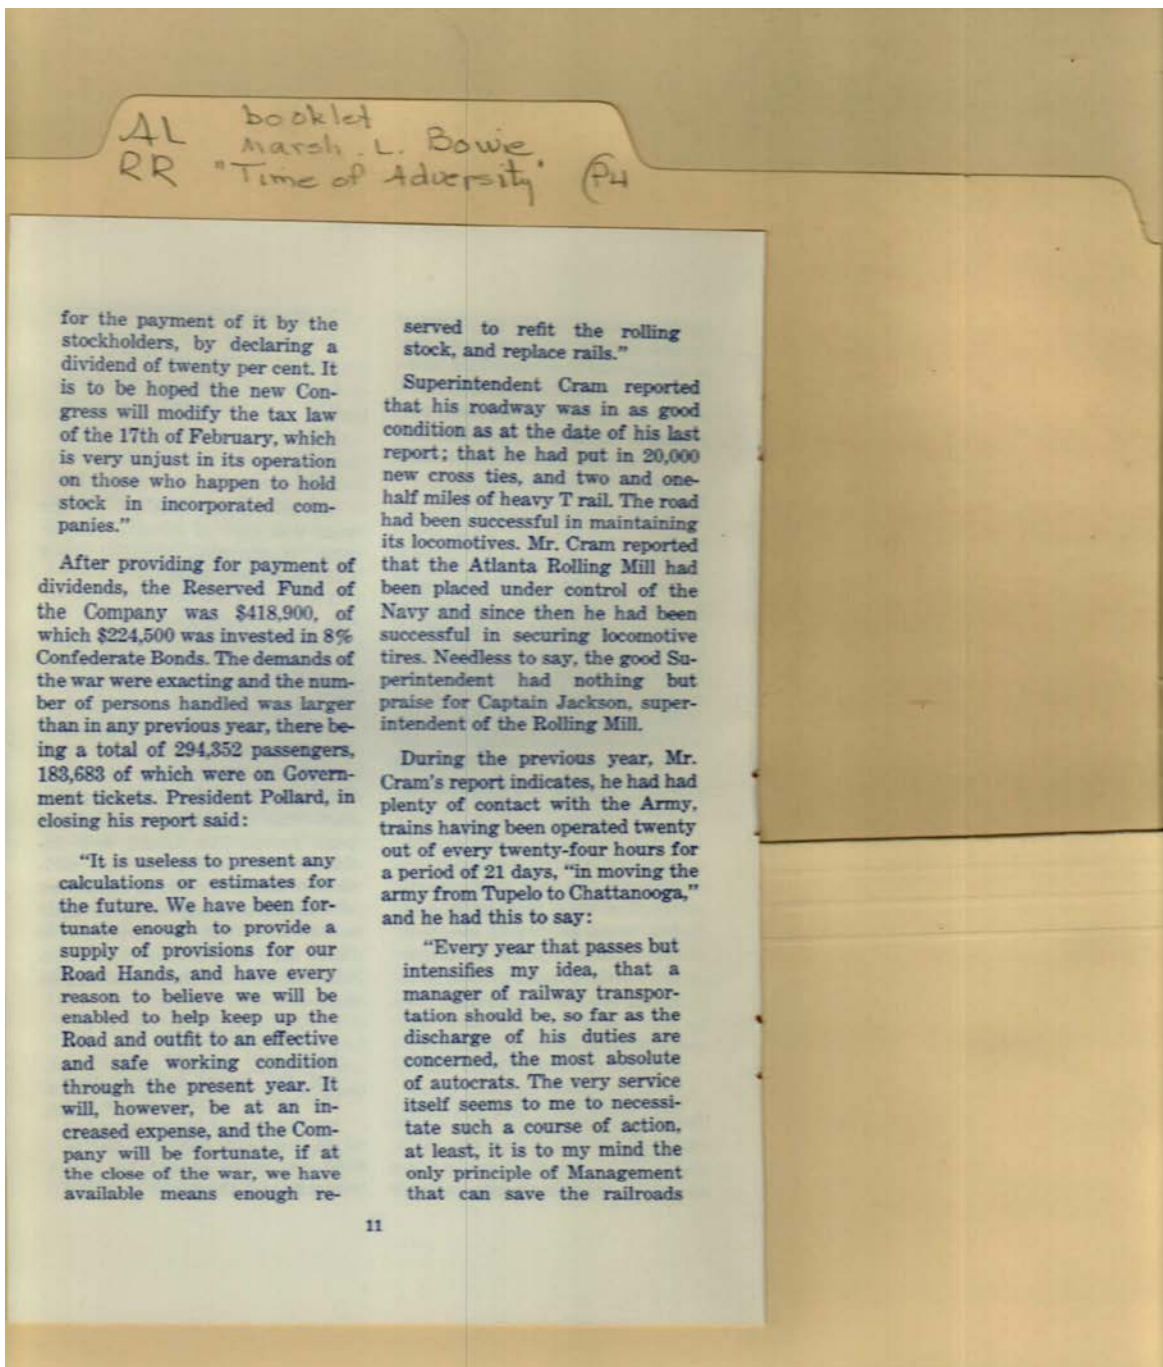 AL booklet
Marsh. L. Bowie
RR "Time of Adversity" P4
for the payment of it by the
stockholders, by declaring a
dividend of twenty per cent. It
is to be hoped the new Con-
gress will modify the tax law
of the 17th of February, which
is very unjust in its operation
on those who happen to hold
stock in incorporated com-
panies."
After providing for payment of
dividends, the Reserved Fund of
the Company was $418,900, of
which $224,500 was invested in 8%
Confederate Bonds. The demands of
the war were exacting and the num-
ber of persons handled was larger
than in any previous year, there be-
ing a total of 294,352 passengers,
183,683 of which were on Govern-
ment tickets. President Pollard, in
closing his report said:
"It is useless to present any
calculations or estimates for
the future. We have been for-
tunate enough to provide a
supply of provisions for our
Road Hands, and have every
reason to believe we will be
enabled to help keep up the
Road and outfit to an effective
and safe working condition
through the present year. It
will, however, be at an in-
creased expense, and the Com-
pany will be fortunate, if at
the close of the war, we have
available means enough re-
served to refit the rolling
stock, and replace rails."
Superintendent Cram reported
that his roadway was in as good
condition as at the date of his last
report; that he had put in 20,000
new cross ties, and two and one-
half miles of heavy T rail. The road
had been successful in maintaining
its locomotives. Mr. Cram reported
that the Atlanta Rolling Mill had
been placed under control of the
Navy and since then he had been
successful in securing locomotive
tires. Needless to say, the good Su-
perintendent had nothing but
praise for Captain Jackson, super-
intendent of the Rolling Mill.
During the previous year, Mr.
Cram's report indicates, he had had
plenty of contact with the Army,
trains having been operated twenty
out of every twenty-four hours for
a period of 21 days, "in moving the
army from Tupelo to Chattanooga,"
and he had this to say:
"Every year that passes but
intensifies my idea, that a
manager of railway transpor-
tation should be, so far as the
discharge of his duties are
concerned, the most absolute
of autocrats. The very service
itself seems to me to necessi-
tate such a course of action,
at least, it is to my mind the
only principle of Management
that can save the railroads
11